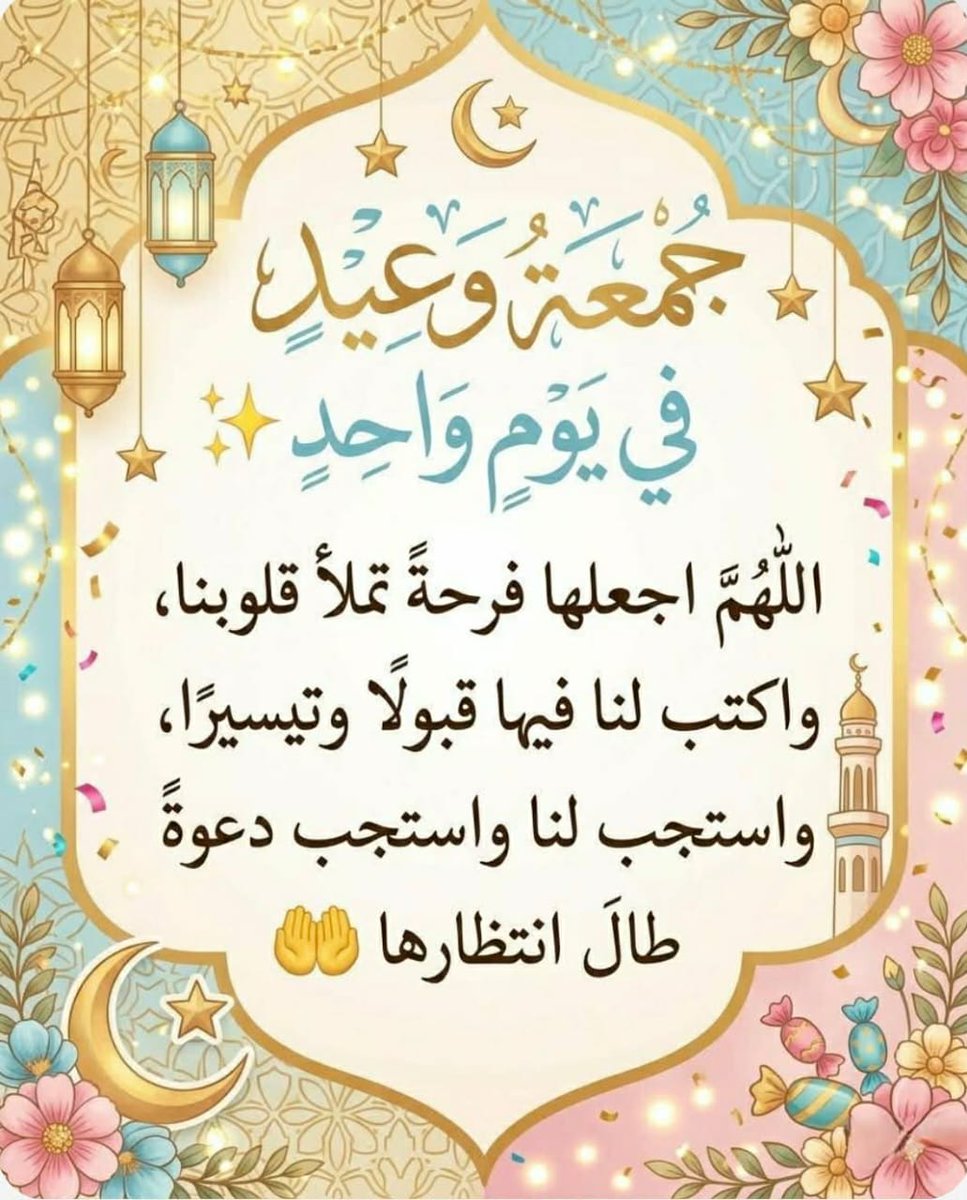 جُمْعَةُ وَعِيْدٍ
فِي يَوْمٍ وَاحِدٍ
اللّٰهُمَّ اجعلها فرحةً تملأ قلوبنا،
واكتب لنا فيها قبولًا وتيسيرًا،
واستجب لنا واستجب دعوةً
طالَ انتظارها 🤲